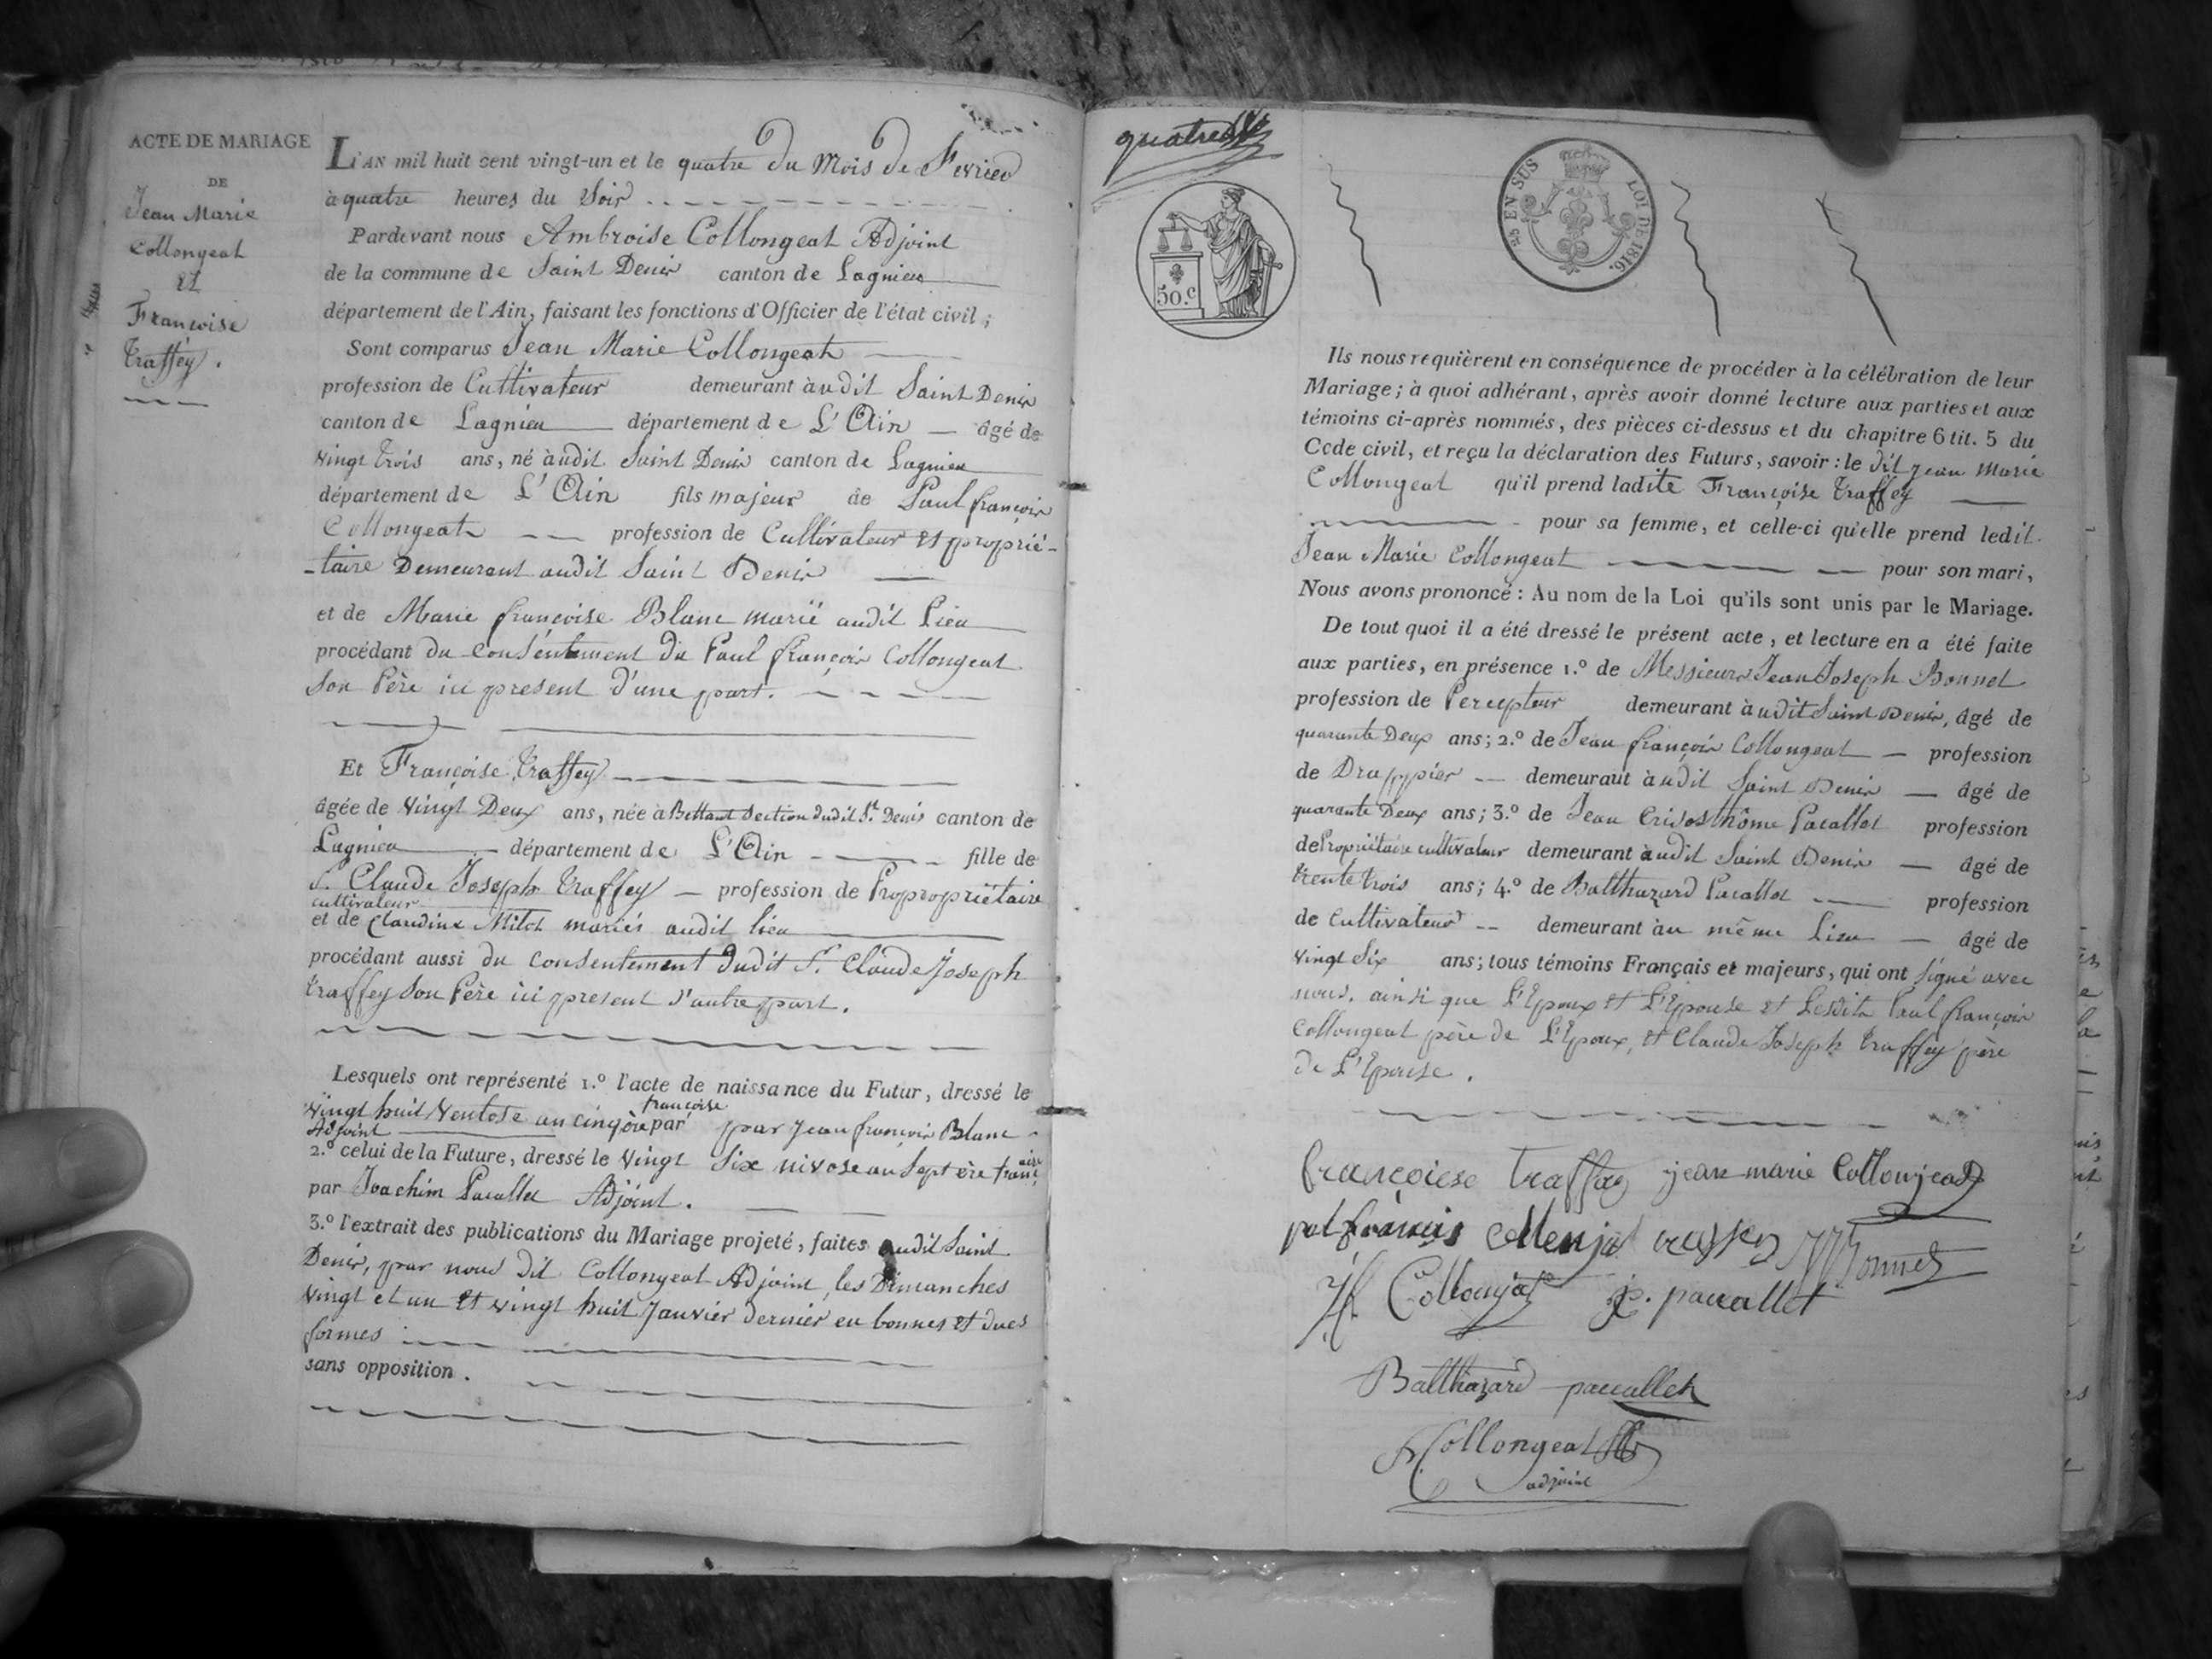 ACTE DE MARIAGE
DE
Jean Marie
Collongeat
Et
Françoise
Traffey.
L'AN mil huit cent vingt-un et le quatre du Mois de Fevrier
à quatre heures du Soir
Pardevant nous Ambroise Collongeat Adjoint
de la commune de Saint Denis canton de Lagnieu
département de l'Ain, faisant les fonctions d'Officier de l'état civil ;
Sont comparus Jean Marie Collongeat
profession de Cultivateur demeurant à udit Saint Denis
canton de Lagnieu département de L'Ain âgé de
vingt trois ans, né à udit Saint Denis canton de Lagnieu
département de L'Ain fils majeur de Paul françois
Collongeat profession de Cultivateur et proprié-
-taire Demeurant audit Saint Denis
et de Marie françoise Blanc marié audit Lieu
procédant du consentement du Paul françois Collongeat
Son Père ici present d'une part.
Et Françoise Traffey
âgée de Vingt Deux ans, née à Bettant Section dudit St. Denis canton de
Lagnieu département de L'Ain fille de
S. Claude Joseph Traffey profession de Propropriétaire
cultivateur
et de Claudine Milch mariés audit lieu
procédant aussi du consentement dudit S. Claude Joseph
traffey Son Père ici present d'autre part.
Lesquels ont représenté 1.º l'acte de naissance du Futur, dressé le
vingt huit Ventose an cinq ère françoise par par Jean françois Blanc
Adjoint
2.º celui de la Future, dressé le Vingt Six nivose an Sept ère françaíse
par Joachim Pacallet Adjoint.
3.º l'extrait des publications du Mariage projeté, faites audit Saint
Denis, par nous dit Collongeat Adjoint, les Dimanches
vingt et un et vingt huit Janvier dernier en bonnes et dues
formes
sans opposition.
quatre
50.c
EN SUS
LOI DE 1816.
Ils nous requièrent en conséquence de procéder à la célébration de leur
Mariage ; à quoi adhérant, après avoir donné lecture aux parties et aux
témoins ci-après nommés, des pièces ci-dessus et du chapitre 6 tit. 5 du
Code civil, et reçu la déclaration des Futurs, savoir : le dit Jean Marie
Collongeat qu'il prend ladite Françoise Traffey
pour sa femme, et celle-ci qu'elle prend ledit
Jean Marie Collongeat pour son mari,
Nous avons prononcé : Au nom de la Loi qu'ils sont unis par le Mariage.
De tout quoi il a été dressé le présent acte, et lecture en a été faite
aux parties, en présence 1.º de Messieurs Jean Joseph Bonnet
profession de Percepteur demeurant à udit Saint Denis, âgé de
quarante Deux ans ; 2.º de Jean françois Collongeat profession
de Drappier demeurant à udit Saint Denis âgé de
quarante Deux ans ; 3.º de Jean Crisosthôme Pacallet profession
de Propriétaire cultivateur demeurant à udit Saint Denis âgé de
trente trois ans ; 4.º de Balthazard Pacallet profession
de Cultivateur demeurant à u même Lieu âgé de
vingt Six ans ; tous témoins Français et majeurs, qui ont signé avec
nous. ainsi que L'Epoux et L'Epouse et Lesdits Paul françois
Collongeat père de L'Epoux, et Claude Joseph traffey père
de L'Epouse.
françoiese traffey jean marie Collonjeat
pol francois collenjat JJ Bonnet
jf Collonjat jc. pacallet
Balthazard pacallet
A Collongeat
adjoint